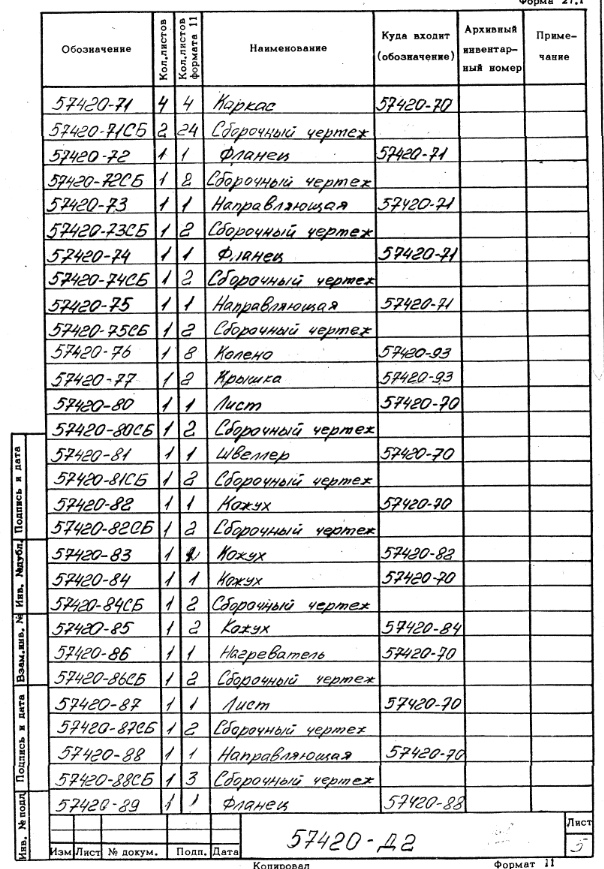 Форма 27.1
Обозначение Кол.листов Кол.листов формата 11 Наименование Куда входит (обозначение) Архивный инвентар-ный номер Приме-чание
57420-71 4 4 Каркас 57420-70
57420-71СБ 2 24 Сборочный чертеж
57420-72 1 1 Фланец 57420-71
57420-72СБ 1 2 Сборочный чертеж
57420-73 1 1 Направляющая 57420-71
57420-73СБ 1 2 Сборочный чертеж
57420-74 1 1 Фланец 57420-71
57420-74СБ 1 2 Сборочный чертеж
57420-75 1 1 Направляющая 57420-71
57420-75СБ 1 2 Сборочный чертеж
57420-76 1 8 Колено 57420-93
57420-77 1 2 Крышка 57420-93
57420-80 1 1 Лист 57420-70
57420-80СБ 1 2 Сборочный чертеж
57420-81 1 1 Швеллер 57420-70
57420-81СБ 1 2 Сборочный чертеж
57420-82 1 1 Кожух 57420-70
57420-82СБ 1 2 Сборочный чертеж
57420-83 1 Кожух 57420-82
57420-84 1 1 Кожух 57420-70
57420-84СБ 1 2 Сборочный чертеж
57420-85 1 2 Кожух 57420-84
57420-86 1 1 Нагреватель 57420-70
57420-86СБ 1 2 Сборочный чертеж
57420-87 1 1 Лист 57420-70
57420-87СБ 1 2 Сборочный чертеж
57420-88 1 1 Направляющая 57420-70
57420-88СБ 1 3 Сборочный чертеж
57420-89 1 1 Фланец 57420-88
Инв. № подл Подпись и дата Взам.инв. № Инв. №дубл. Подпись и дата
Изм Лист № докум. Подп. Дата
57420-Д2
Лист
5
Копировал Формат 11